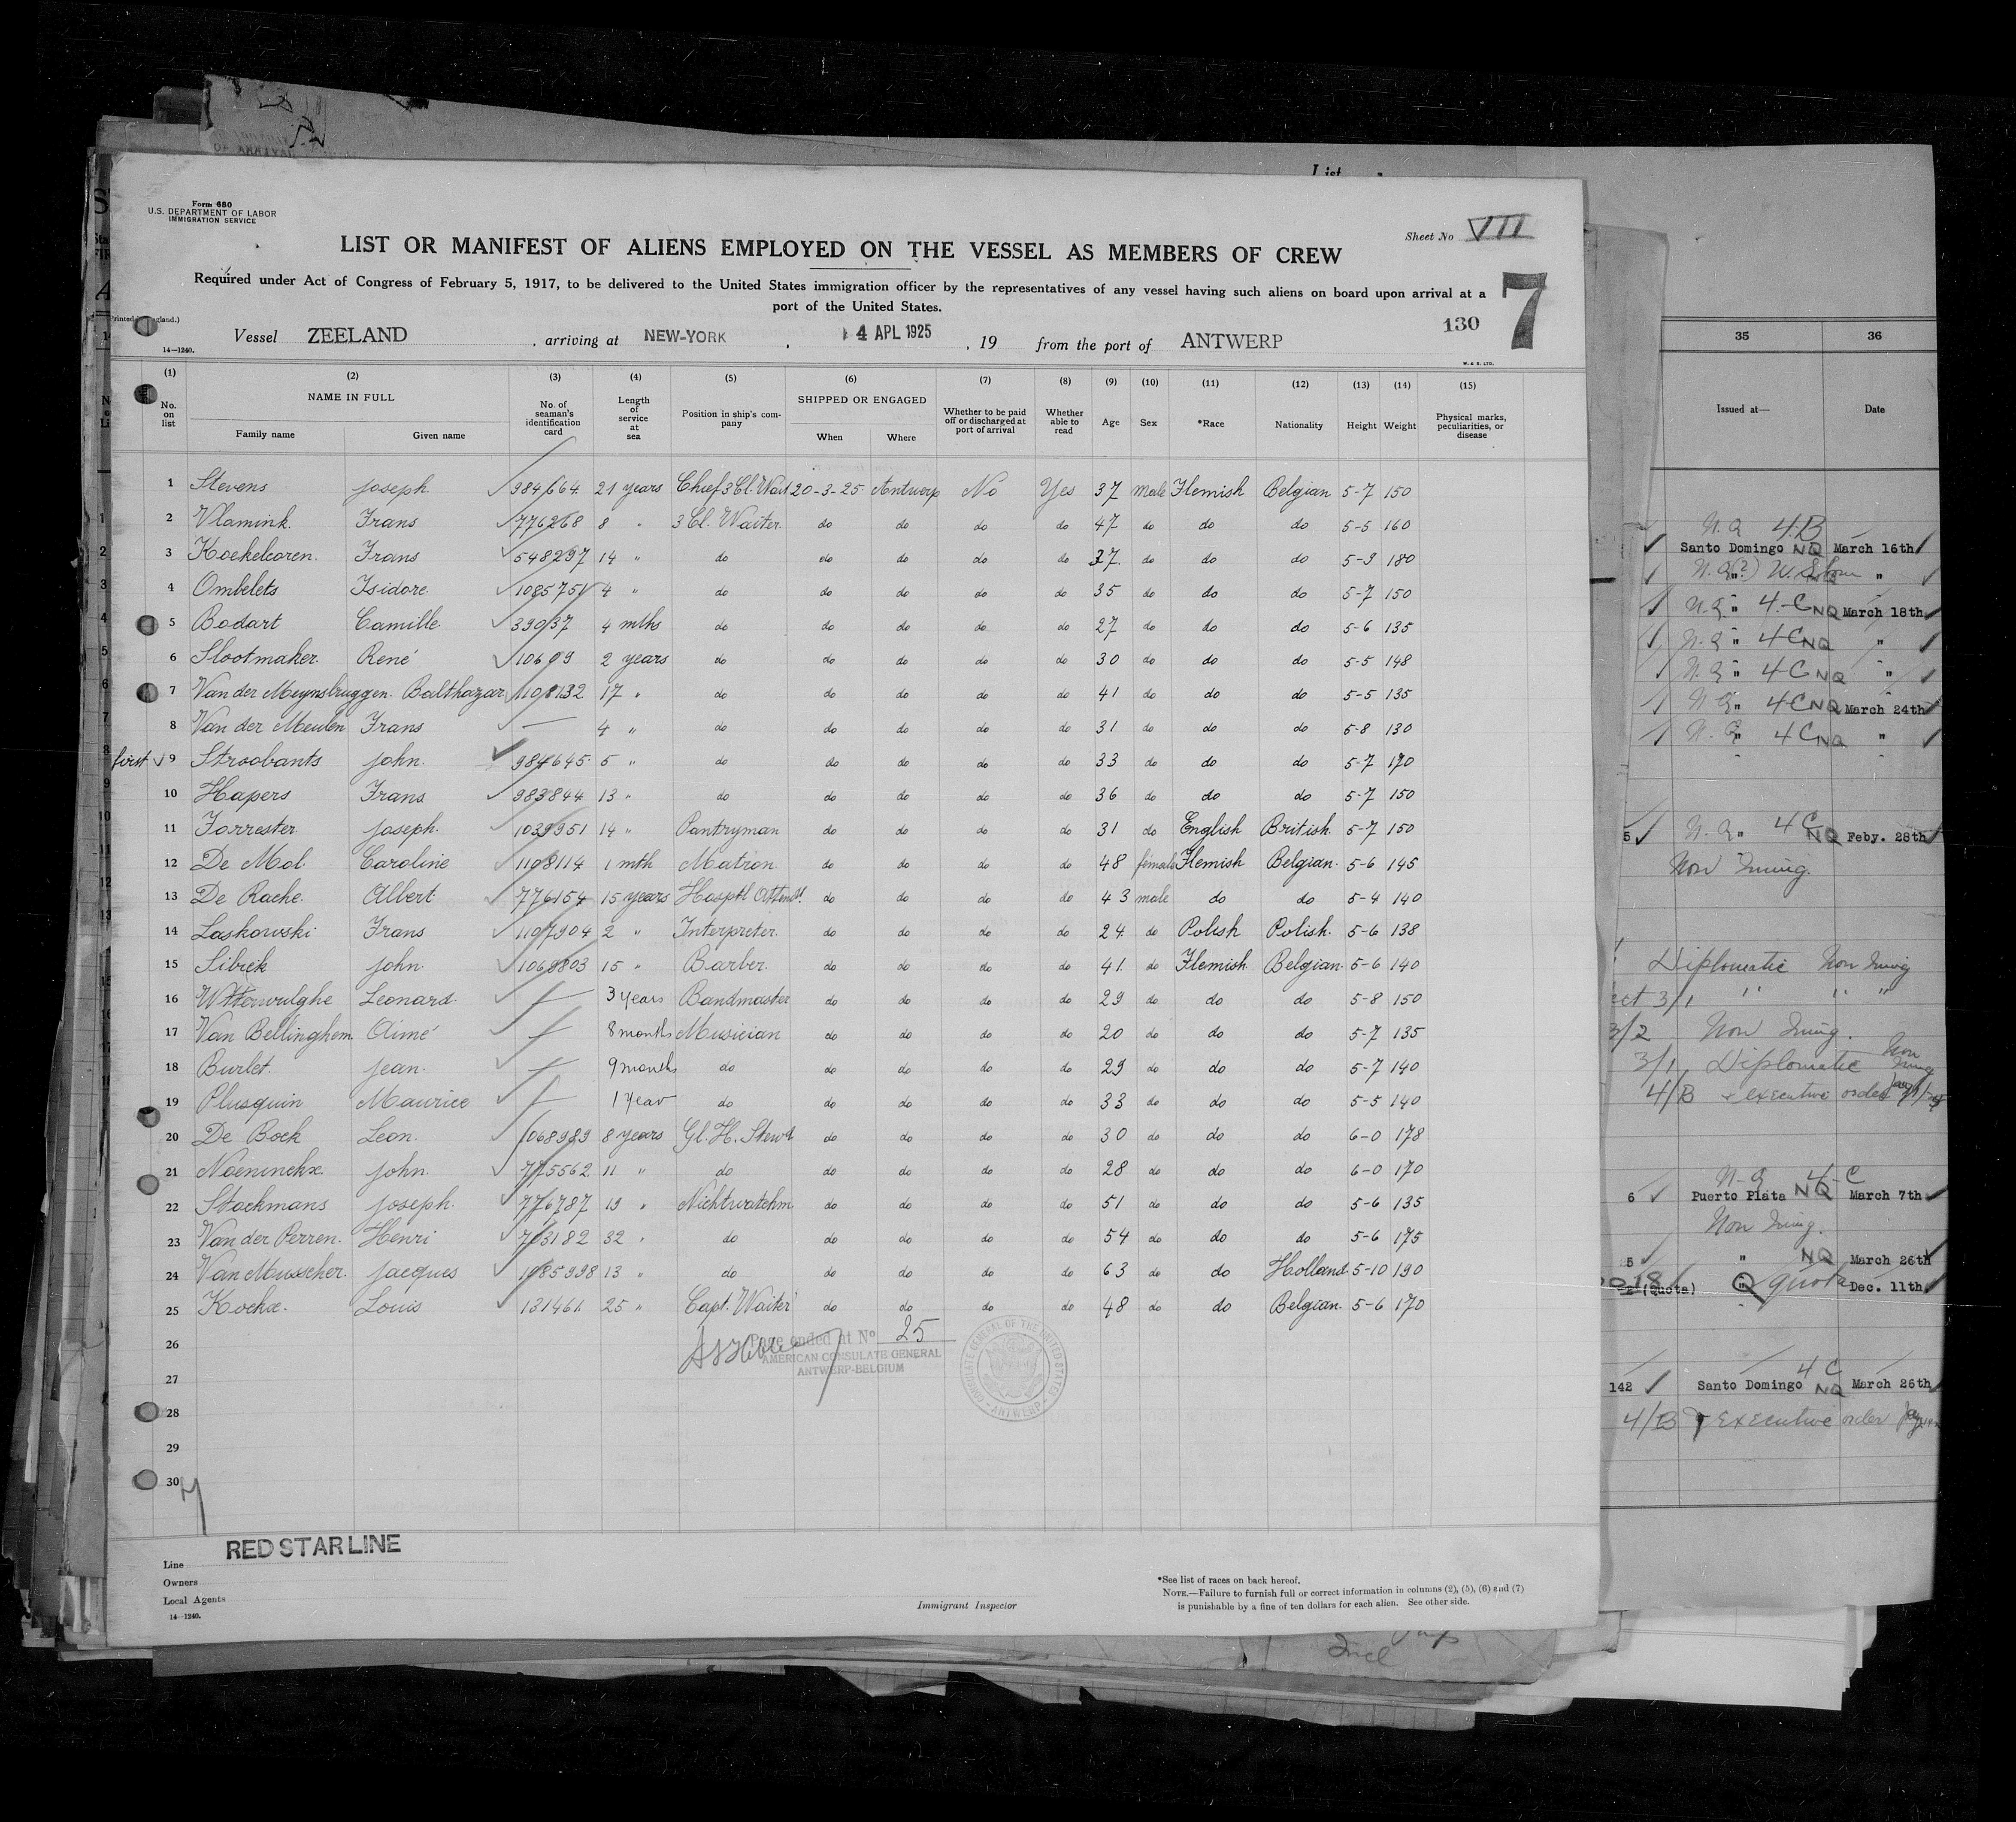 Form 680
U.S. DEPARTMENT OF LABOR
IMMIGRATION SERVICE
Sheet No VII
LIST OR MANIFEST OF ALIENS EMPLOYED ON THE VESSEL AS MEMBERS OF CREW
Required under Act of Congress of February 5, 1917, to be delivered to the United States immigration officer by the representatives of any vessel having such aliens on board upon arrival at a
port of the United States.
7
130
Vessel ZEELAND , arriving at NEW-YORK , 4 APL 1925 , 19 from the port of ANTWERP
14—1240.
(1) (2) (3) (4) (5) (6) (7) (8) (9) (10) (11) (12) (13) (14) (15)
No. on list NAME IN FULL Family name Given name No. of seaman's identification card Length of service at sea Position in ship's company SHIPPED OR ENGAGED When Where Whether to be paid off or discharged at port of arrival Whether able to read Age Sex *Race Nationality Height Weight Physical marks, peculiarities, or disease
1 Stevens Joseph. 984664 21 years Chief 3 Cl. Wait 20-3-25 Antwerp No Yes 37 male Flemish Belgian 5-7 150
2 Vlamink. Frans 776268 8 " 3 Cl. Waiter. do do do do 47 do do do 5-5 160
3 Koekelcoren. Frans 548297 14 " do do do do do 37. do do do 5-3 180
4 Ombelets Isidore 1085751 4 " do do do do do 35 do do do 5-7 150
5 Bodart Camille. 39037 4 mths do do do do do 27 do do do 5-6 135
6 Slootmaker. René 10609 2 years do do do do do 30 do do do 5-5 148
7 Van der Meynsbruggen. Balthazar 1108132 17 " do do do do do 41 do do do 5-5 135
8 Van der Meulen Frans — 4 " do do do do do 31 do do do 5-8 130
first 9 Stroobants John. 984645 5 " do do do do do 33 do do do 5-7 170
10 Hapers Frans 983844 13 " do do do do do 36 do do do 5-7 150
11 Forrester Joseph. 1039951 14 " Pantryman do do do do 31 do English British. 5-7 150
12 De Mol. Caroline 1108114 1 mth Matron do do do do 48 female Flemish Belgian. 5-6 145
13 De Rache. Albert 776154 15 years Hosptl Attendt. do do do do 43 male do do 5-4 140
14 Laskowski Frans 1107904 2 " Interpreter. do do do do 24 do Polish Polish. 5-6 138
15 Sibrek John 1069803 15 " Barber. do do do do 41. do Flemish Belgian. 5-6 140
16 Witterwulghe Leonard. 3 years Bandmaster do do do do 29 do do do 5-8 150
17 Van Bellinghem. Aimé 8 months Musician do do do do 20 do do do 5-7 135
18 Burlet. Jean. 9 months do do do do do 29 do do do 5-7 140
19 Plusquin Maurice 1 year do do do do do 33 do do do 5-5 140
20 De Bock Leon. 1068989 8 years Gl. H. Stewd do do do do 30 do do do 6-0 178
21 Noeninckx. John. 775562 11 " do do do do do 28 do do do 6-0 170
22 Stockmans Joseph. 776787 19 " Nichtwatchm. do do do do 51 do do do 5-6 135
23 Van der Perren. Henri 703182 32 " do do do do do 54 do do do 5-6 175
24 Van Musscher. Jacques 1085998 13 " do do do do do 63 do do Holland. 5-10 190
25 Kockx. Louis 131461 25 " Capt. Waiter do do do do 48 do do Belgian. 5-6 170
26
27
28
29
30
Page ended at No 25
AMERICAN CONSULATE GENERAL
ANTWERP-BELGIUM
CONSULATE GENERAL OF THE UNITED STATES
ANTWERP
RED STAR LINE
Line
Owners
Local Agents
14—1240.
Immigrant Inspector
*See list of races on back hereof.
NOTE.—Failure to furnish full or correct information in columns (2), (5), (6) and (7)
is punishable by a fine of ten dollars for each alien. See other side.
List
35 36
Issued at— Date
N.Q 4.B
Santo Domingo NQ March 16th
N.Q "
N.Q " 4-C NQ March 18th
N.Q " 4C NQ "
N.Q " 4-C NQ "
N.Q " 4-C NQ March 24th
N.Q " 4C NQ "
5 N.Q " 4C NQ Feby. 28th
Non Immig.
Diplomatic Non Immig
3/1 " " "
3/2 Non Immig.
3/1 Diplomatic Non Immig
4/B + executive order
N-Q 4-C
6 Puerto Plata NQ March 7th
Non Immig.
5 " NQ March 26th
(Quota) " Q quota Dec. 11th
4 C
142 Santo Domingo NQ March 26th
4/B + Executive order